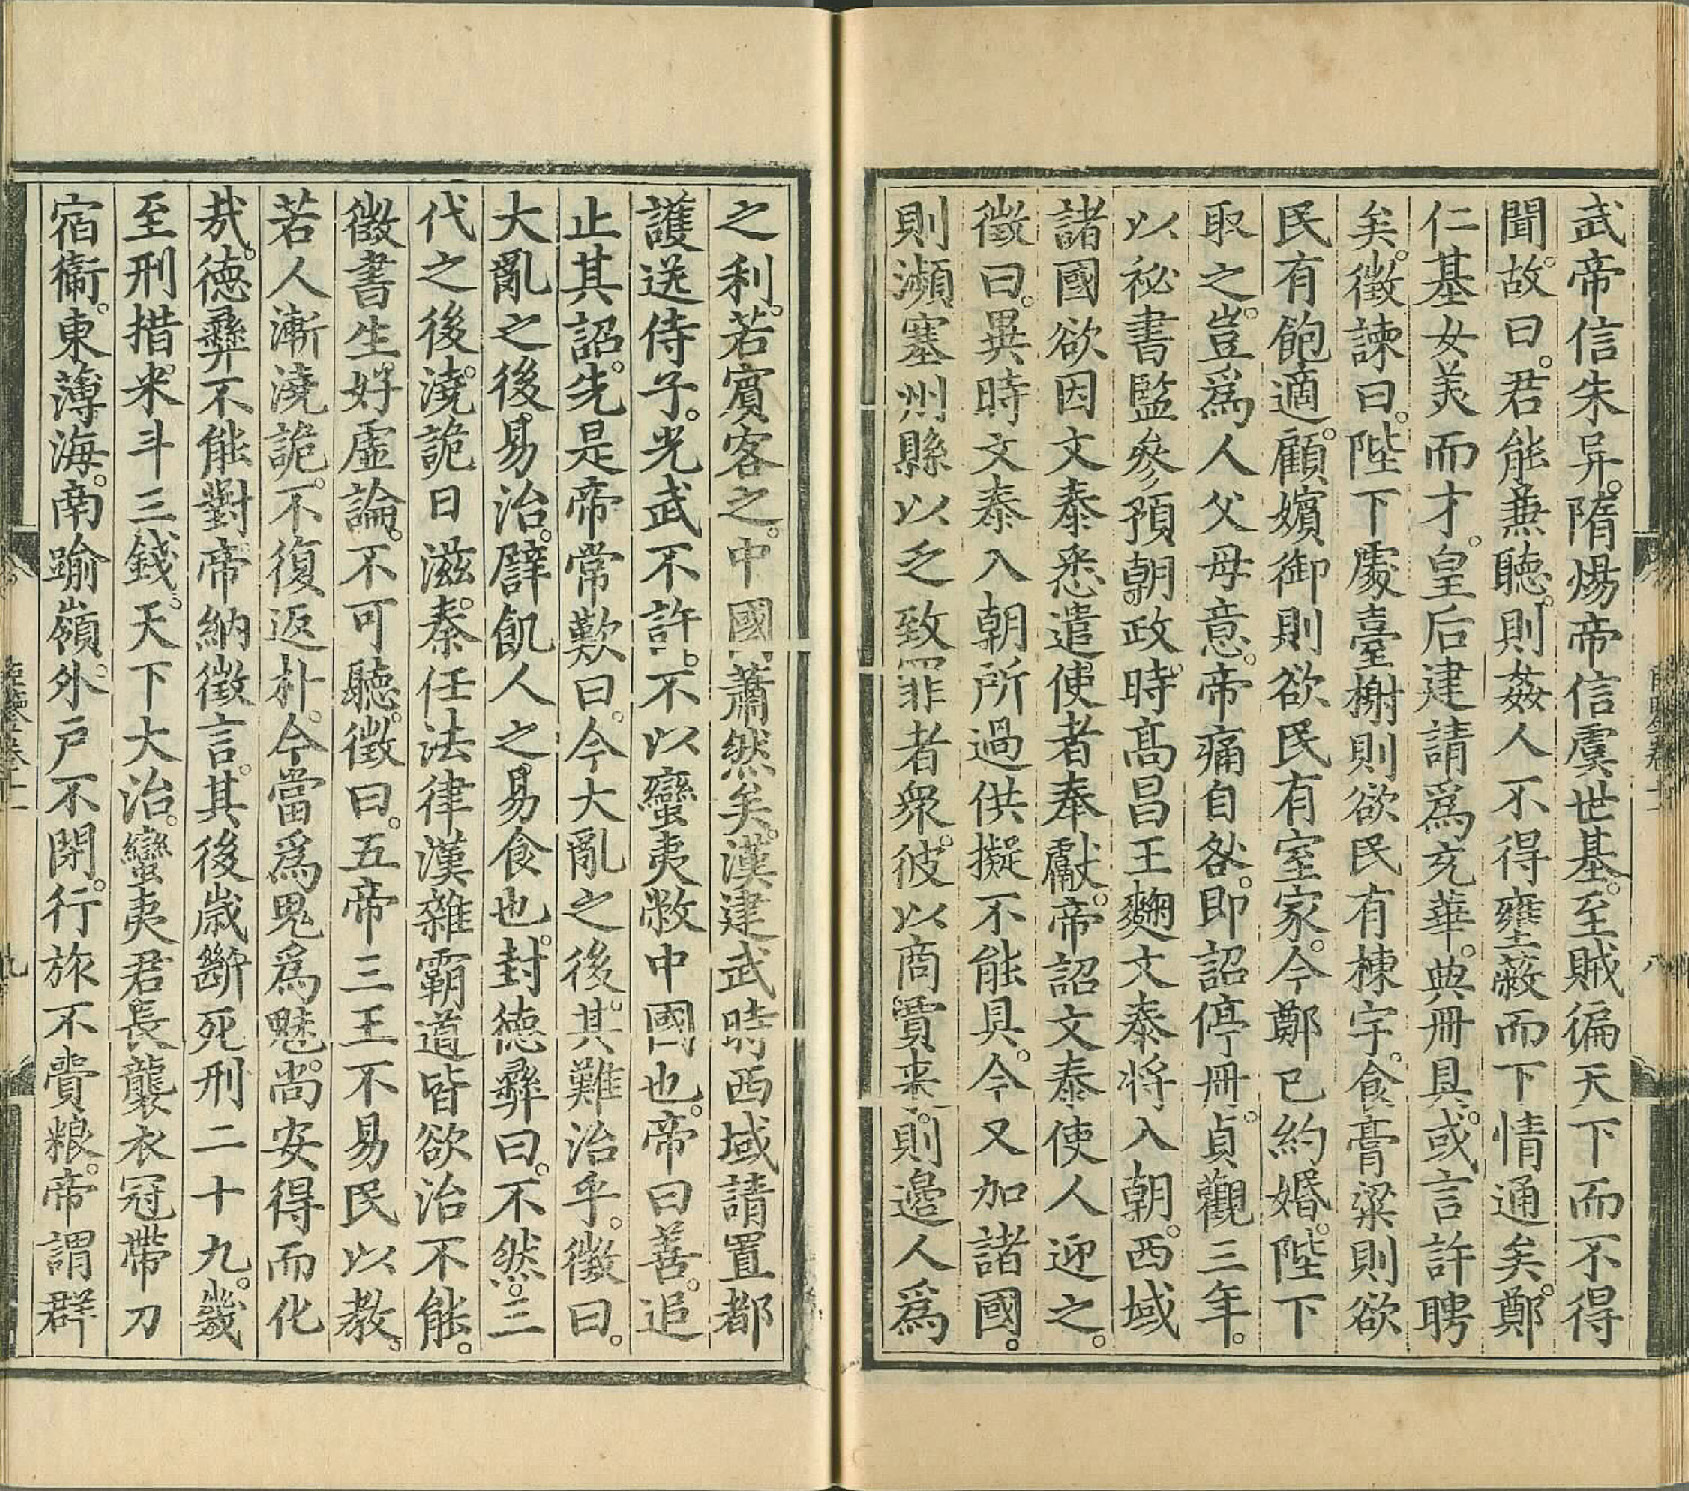 武帝信朱异。隋煬帝信虞世基。至賊徧天下而不得
聞。故曰。君能兼聽。則姦人不得壅蔽而下情通矣。鄭
仁基女美而才。皇后建請爲充華。典冊具。或言許聘
矣。徵諫曰。陛下處臺榭則欲民有棟宇。食膏粱則欲
民有飽適。顧嬪御則欲民有室家。今鄭已約婚。陛下
取之。豈爲人父母意。帝痛自咎。即詔停冊。貞觀三年。
以祕書監參預朝政。時高昌王麴文泰將入朝。西域
諸國欲因文泰悉遣使者奉獻。帝詔文泰使人迎之。
徵曰。異時文泰入朝所過供擬不能具。今又加諸國。
則瀕塞州縣以乏致罪者衆。彼以商賈來。則邊人爲
之利。若賓客之。中國蕭然矣。漢建武時西域請置都
護送侍子。光武不許。不以蠻夷敝中國也。帝曰善。追
止其詔。先是帝常歎曰。今大亂之後。其難治乎。徵曰。
大亂之後易治。譬飢人之易食也。封德彝曰。不然。三
代之後。澆詭日滋。秦任法律漢雜霸道皆欲治不能。
徵書生。好虛論。不可聽。徵曰。五帝三王不易民以教。
若人漸澆詭。不復返朴。今當爲鬼爲魅。尚安得而化
哉。德彝不能對帝納徵言。其後歲斷死刑二十九。幾
至刑措。米斗三錢。天下大治。蠻夷君長襲衣冠帶刀
宿衞。東薄海。南踰嶺。外戶不閉。行旅不齎粮。帝謂群
八
九